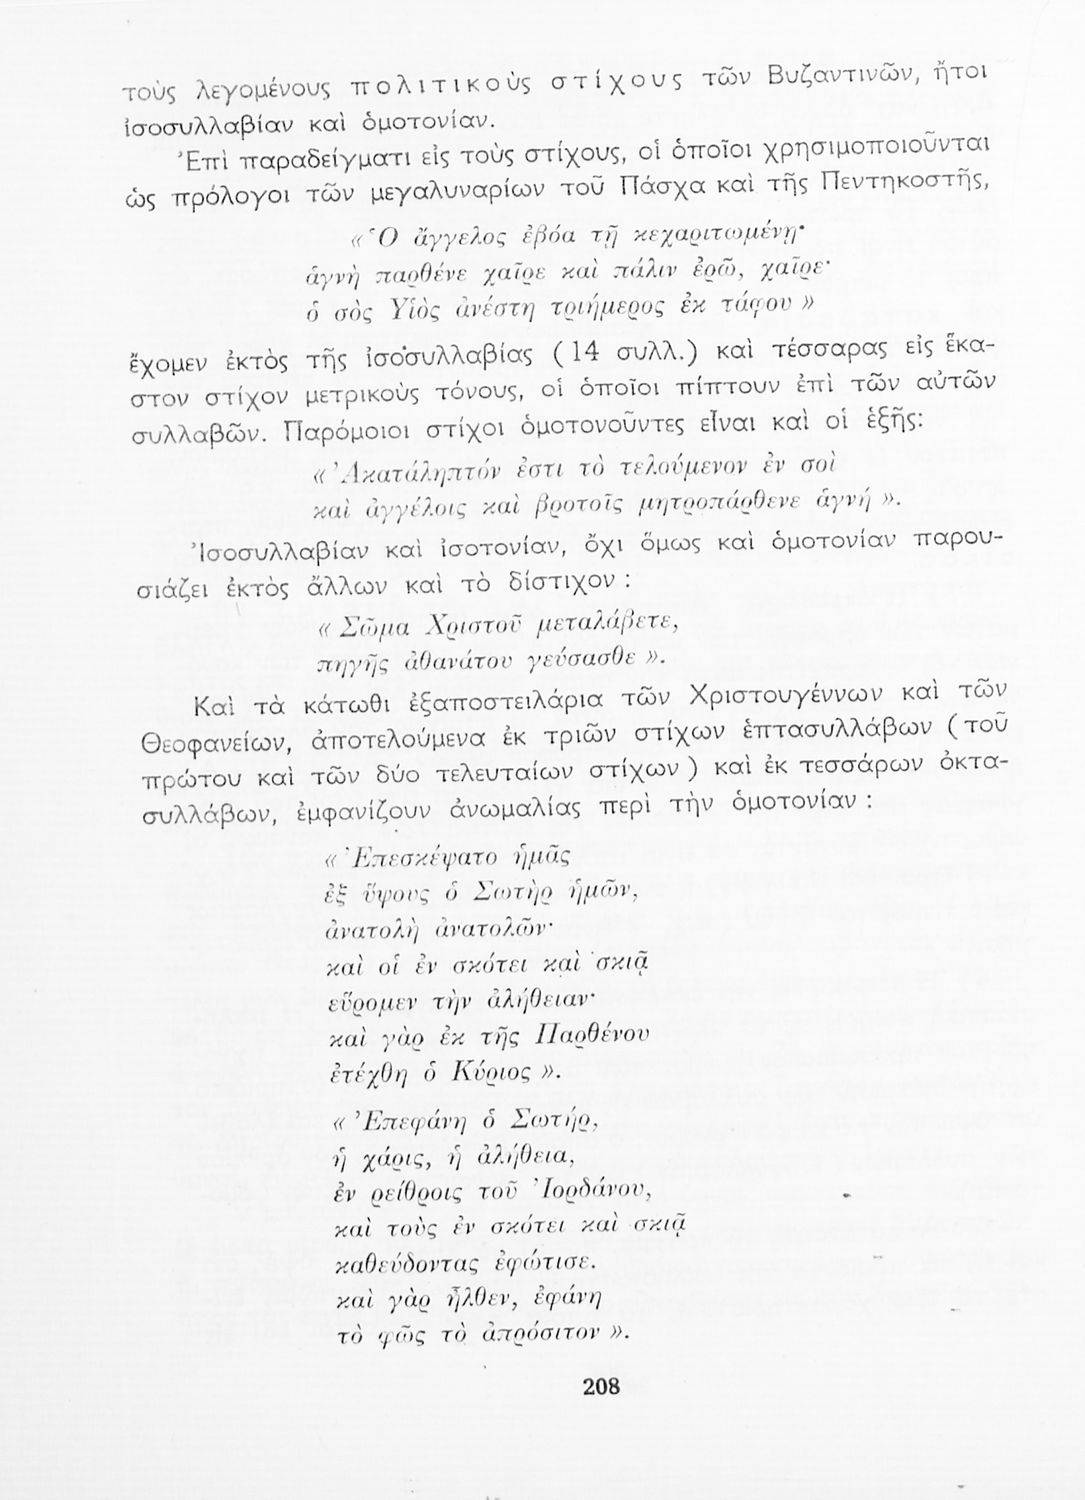 τοὺς λεγομένους πολιτικοὺς στίχους τῶν Βυζαντινῶν, ἤτοι
ἰσοσυλλαβίαν καὶ ὁμοτονίαν.
Ἐπὶ παραδείγματι εἰς τοὺς στίχους, οἱ ὁποῖοι χρησιμοποιοῦνται
ὡς πρόλογοι τῶν μεγαλυναρίων τοῦ Πάσχα καὶ τῆς Πεντηκοστῆς,
« Ὁ ἄγγελος ἐβόα τῇ κεχαριτωμένῃ·
ἁγνὴ παρθένε χαῖρε καὶ πάλιν ἐρῶ, χαῖρε·
ὁ σὸς Υἱὸς ἀνέστη τριήμερος ἐκ τάφου »
ἔχομεν ἐκτὸς τῆς ἰσοσυλλαβίας (14 συλλ.) καὶ τέσσαρας εἰς ἕκα-
στον στίχον μετρικοὺς τόνους, οἱ ὁποῖοι πίπτουν ἐπὶ τῶν αὐτῶν
συλλαβῶν. Παρόμοιοι στίχοι ὁμοτονοῦντες εἶναι καὶ οἱ ἑξῆς:
« Ἀκατάληπτόν ἐστι τὸ τελούμενον ἐν σοὶ
καὶ ἀγγέλοις καὶ βροτοῖς μητροπάρθενε ἁγνή ».
Ἰσοσυλλαβίαν καὶ ἰσοτονίαν, ὄχι ὅμως καὶ ὁμοτονίαν παρου-
σιάζει ἐκτὸς ἄλλων καὶ τὸ δίστιχον :
« Σῶμα Χριστοῦ μεταλάβετε,
πηγῆς ἀθανάτου γεύσασθε ».
Καὶ τὰ κάτωθι ἐξαποστειλάρια τῶν Χριστουγέννων καὶ τῶν
Θεοφανείων, ἀποτελούμενα ἐκ τριῶν στίχων ἑπτασυλλάβων (τοῦ
πρώτου καὶ τῶν δύο τελευταίων στίχων ) καὶ ἐκ τεσσάρων ὀκτα-
συλλάβων, ἐμφανίζουν ἀνωμαλίας περὶ τὴν ὁμοτονίαν :
« Ἐπεσκέψατο ἡμᾶς
ἐξ ὕψους ὁ Σωτὴρ ἡμῶν,
ἀνατολὴ ἀνατολῶν·
καὶ οἱ ἐν σκότει καὶ σκιᾷ
εὕρομεν τὴν ἀλήθειαν·
καὶ γὰρ ἐκ τῆς Παρθένου
ἐτέχθη ὁ Κύριος ».
« Ἐπεφάνη ὁ Σωτήρ,
ἡ χάρις, ἡ ἀλήθεια,
ἐν ρείθροις τοῦ Ἰορδάνου,
καὶ τοὺς ἐν σκότει καὶ σκιᾷ
καθεύδοντας ἐφώτισε.
καὶ γὰρ ἦλθεν, ἐφάνη
τὸ φῶς τὸ ἀπρόσιτον ».
208